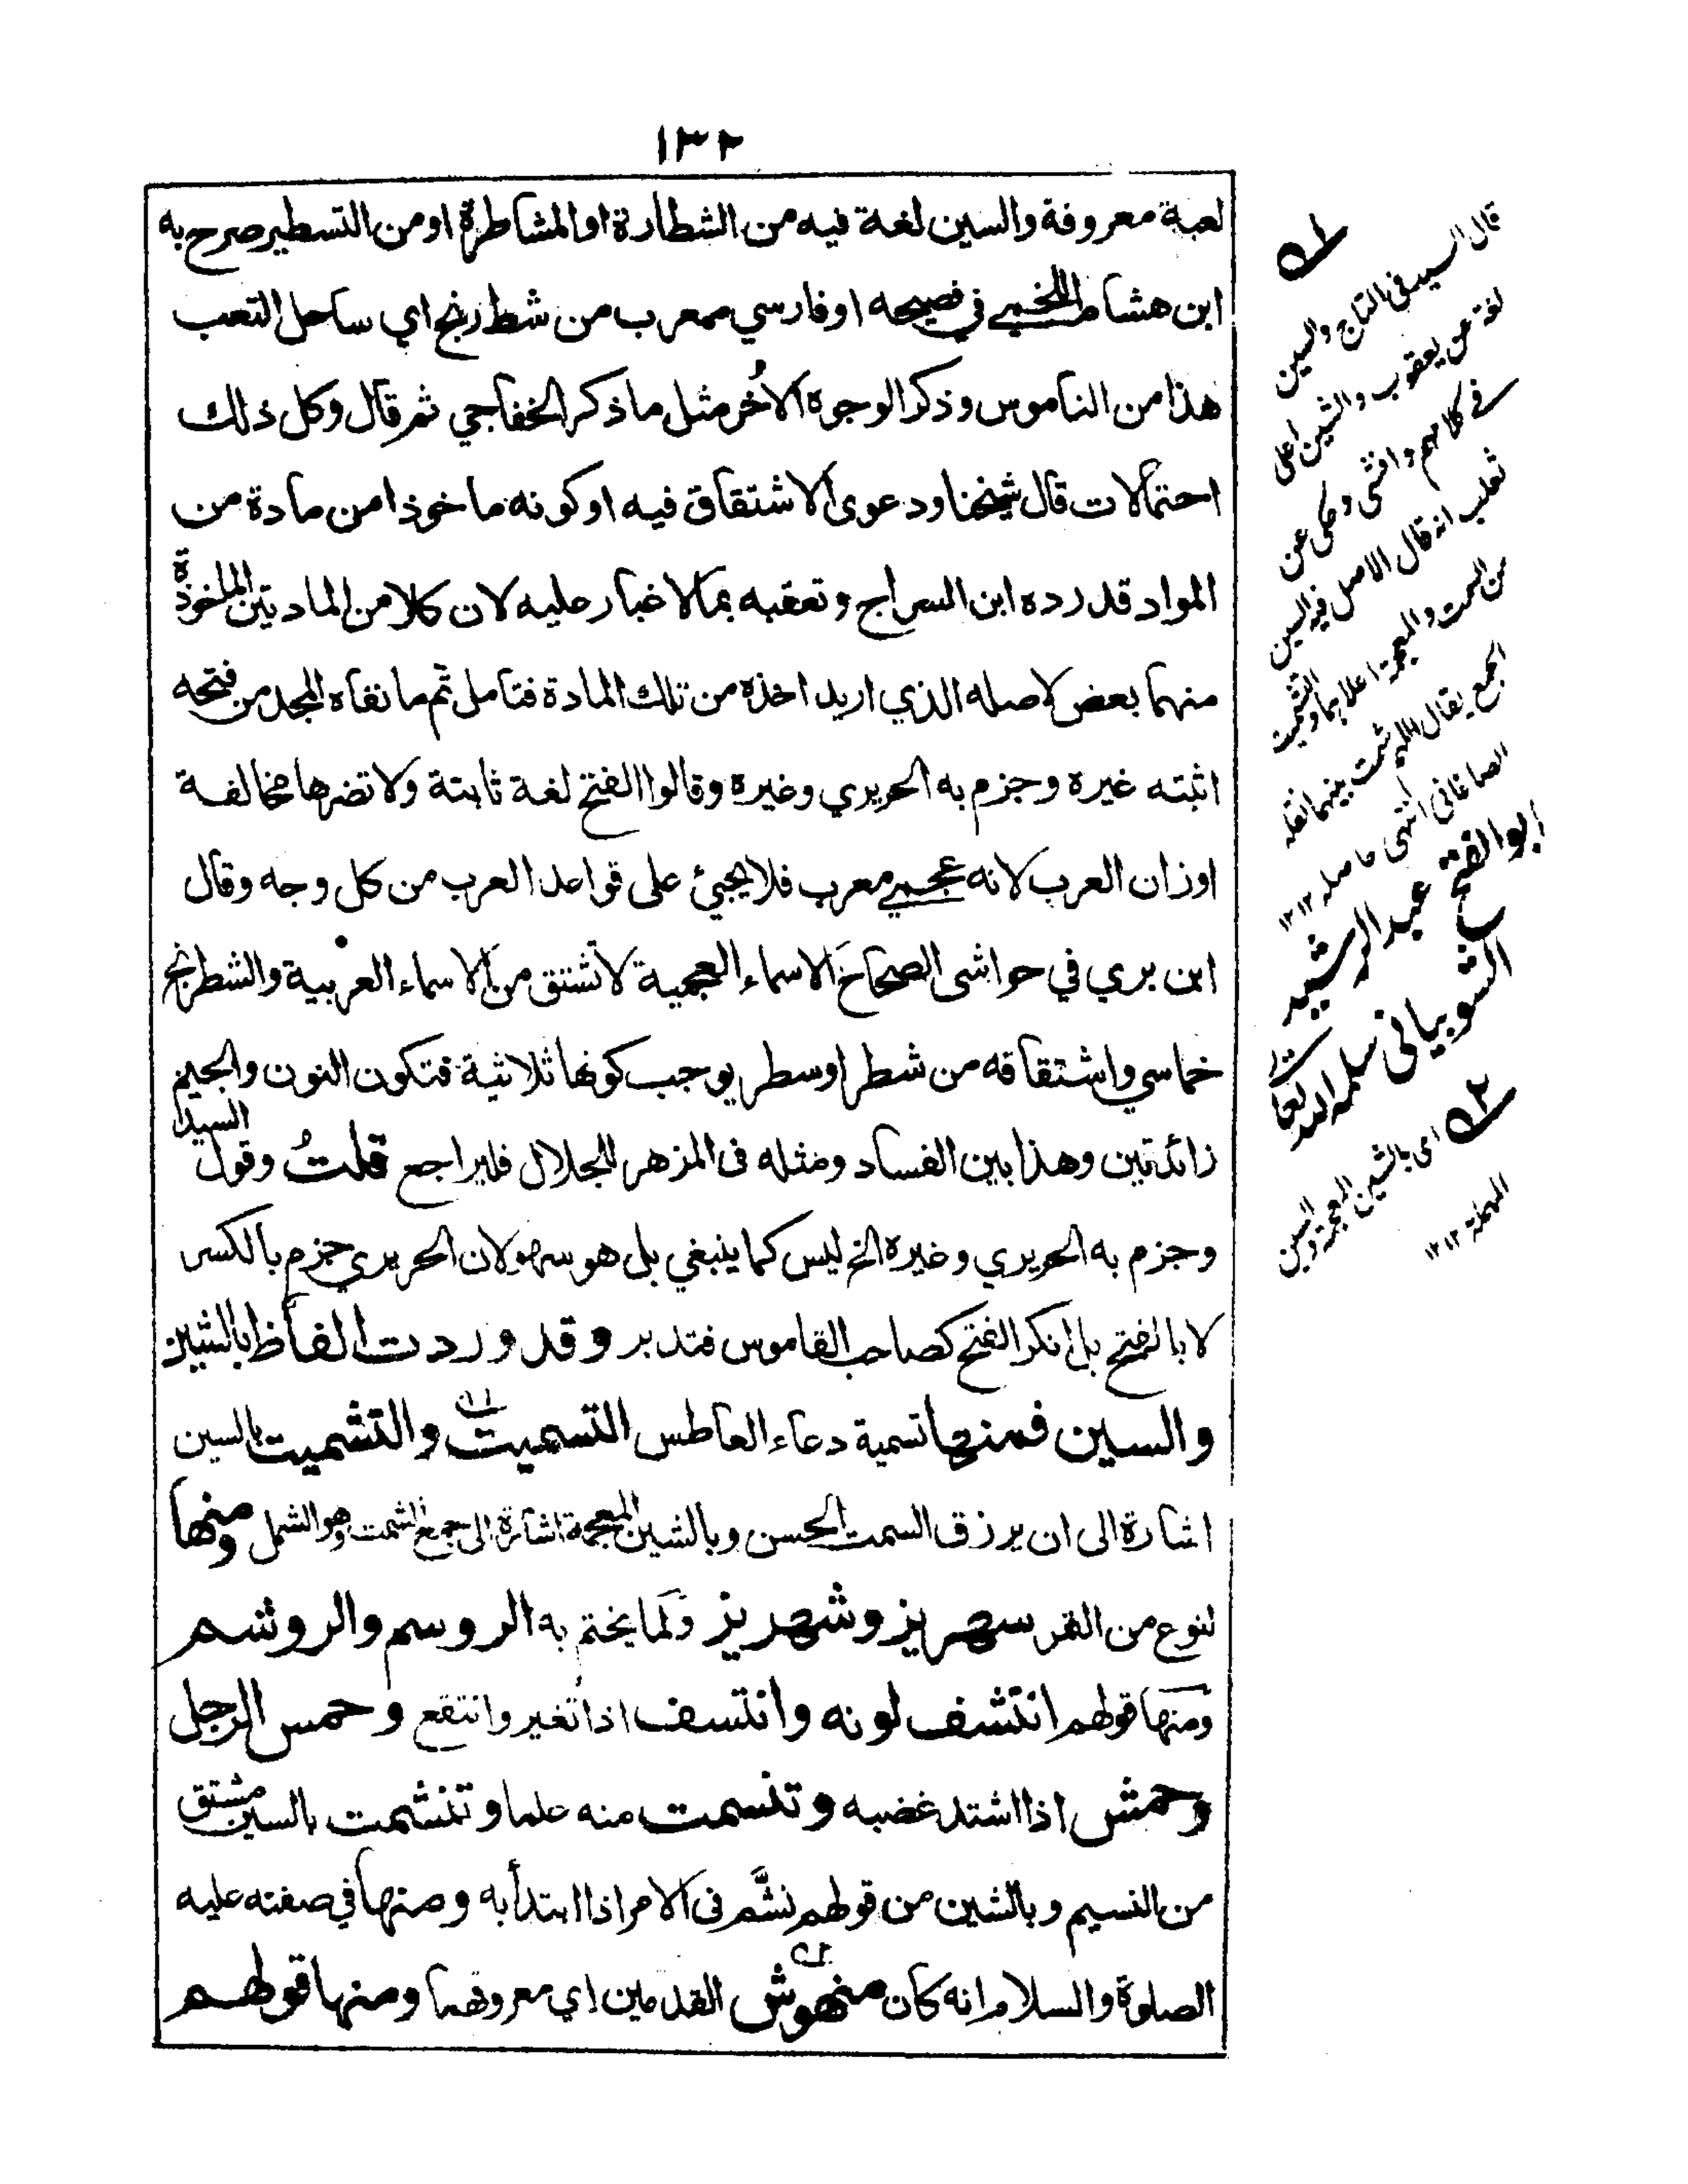 ١٣٢
لعبة معروفة والسين لغة فيه من الشطارة او المشاطرة او من التسطير صرح به
ابن هشام اللخمي في فصيحه او فارسي معرب من شط رنج اي ساحل التعب
هذا من الناموس وذكر الوجوه الاُخر مثل ما ذكر الخفاجي ثم قال وكل ذلك
احتمالات قال شيخنا ودعوى الاشتقاق فيه او كونه ماخوذا من مادة من
المواد قد رده ابن السراج وتعقبه بما لا غبار عليه لان كلا من المادتين الماخوذة
منهما بعض لاصله الذي اريد اخذه من تلك المادة فتامل ثم ما نفاه المجد من فتحه
اثبته غيره وجزم به الحريري وغيره وقالوا الفتح لغة ثابتة ولا تضرها مخالفة
اوزان العرب لانه عجمي معرب فلا يجيئ على قواعد العرب من كل وجه وقال
ابن بري في حواشى الصحاح الاسماء العجمية لا تشتق من الاسماء العربية والشطرنج
خماسي واشتقاقه من شطر او سطر يوجب كونها ثلاثية فتكون النون والجيم
زائدتين وهذا بين الفساد ومثله فى المزهر للجلال فليراجع قلتُ وقول السيد
وجزم به الحريري وغيره الخ ليس كما ينبغي بل هو سهو لان الحريري جزم بالكسر
لا بالفتح بل انكر الفتح كصاحب القاموس فتدبر وقد وردت الفاظ بالشين
والسين فمنها تسمية دعاء العاطس التسميت والتشميت بالسين
اشارة الى ان يرزق السمت الحسن وبالشين المعجمة اشارة الى جمع الشمت وهو الشمل ومنها
لنوع من التمر سهريز وشهريز ولما يختم به الروسم والروشم
ومنها قولهم انتشف لونه وانتسف اذا تغير وانتقع وحمس الرجل
وحمش اذا اشتد غضبه وتنسمت منه علما وتنشمت بالسين مشتق
من النسيم وبالشين من قولهم نشَّم فى الامر اذا ابتدأ به ومنها في صفته عليه
الصلوة والسلام انه كان منهوش القدمين اي معروقهما ومنها قولهم
١
قال السيد فى التاج والسين
لغة عن يعقوب والشين اعلى
في كلامهم وافشى وحكى عن
ثعلب انه قال الاصل فيه السين
من السمت والمعجمة اعلاهما والتشميت
الجمع يقال اللهم شمت بينهما نقله
الصاغانى انتهى حاصله ١٢١٢
ابو الفتح عبد الرشيد
الشوبيانى سلمه الله تعالى
٢
اى بالشين المعجمة والسين
المهملة ١٢١٢